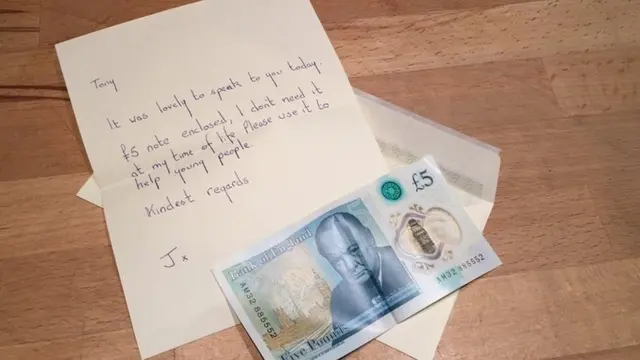 Tony
It was lovely to speak to you today.
£5 note enclosed, I dont need it
at my time of life. Please use it to
help young people.
Kindest regards
J x
£5
Bank of England
AM32 885552
AM32 885552
Five Pounds